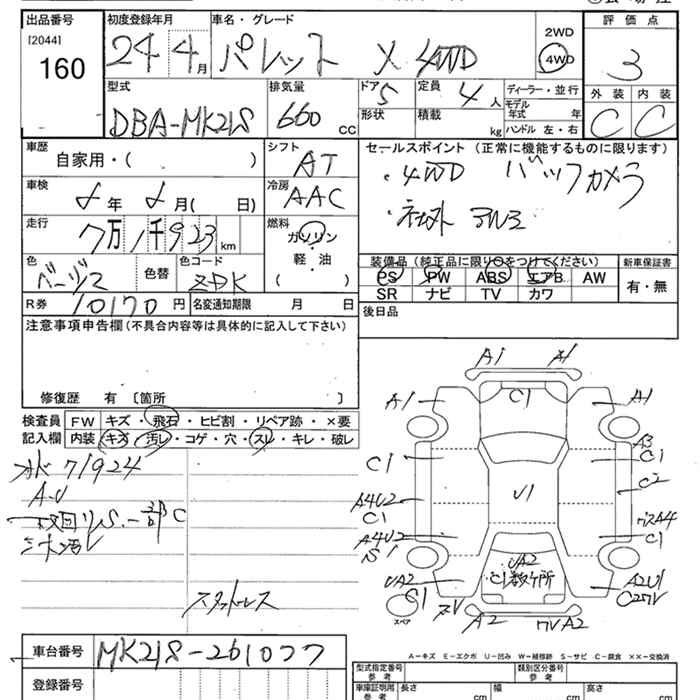 出品番号
[2044]
160
初度登録年月
24 4月
車名・グレード
パレット X 4WD
2WD
4WD
評価点
3
外装 内装
C C
型式
DBA-MK21S
排気量
660 CC
ドア 5
形状
定員 4 人
積載 kg
ディーラー・並行
モデル年式 年
ハンドル 左・右
車歴
自家用・( )
シフト
AT
セールスポイント (正常に機能するものに限ります)
・4WD バックカメラ
・社外 アルミ
車検
年 月( 日)
冷房
AAC
走行
7万1千923km
燃料
ガソリン
・
軽・油
( )
色
色替
色コード
ZDK
装備品 (純正品に限り○をつけてください)
PS PW ABS エアB AW
SR ナビ TV カワ
新車保証書
有・無
R券 10170 円
名変通知期限 月 日
後日品
注意事項申告欄 (不具合内容等は具体的に記入して下さい)
修復歴 有 〔箇所 〕
検査員記入欄
FW キズ・飛石・ヒビ割・リペア跡・×要
内装 キズ・汚レ・コゲ・穴・スレ・キレ・破レ
71924
スタットレス
A1 A1
A1 C1 A1
A3
C1 C1
C2
A4U2 U1
C1
A4U2 C1
S1
UA2 UA2 A2U1
C1数ヶ所
C1
スペア
A2
A-キズ E-エクボ U-凹み W-補修跡 S-サビ C-腐食 ××-交換済
車台番号 MK21S-261077
登録番号
型式指定番号 参考
類別区分番号 参考
車庫証明用 参考 長さ cm 幅 cm 高さ cm